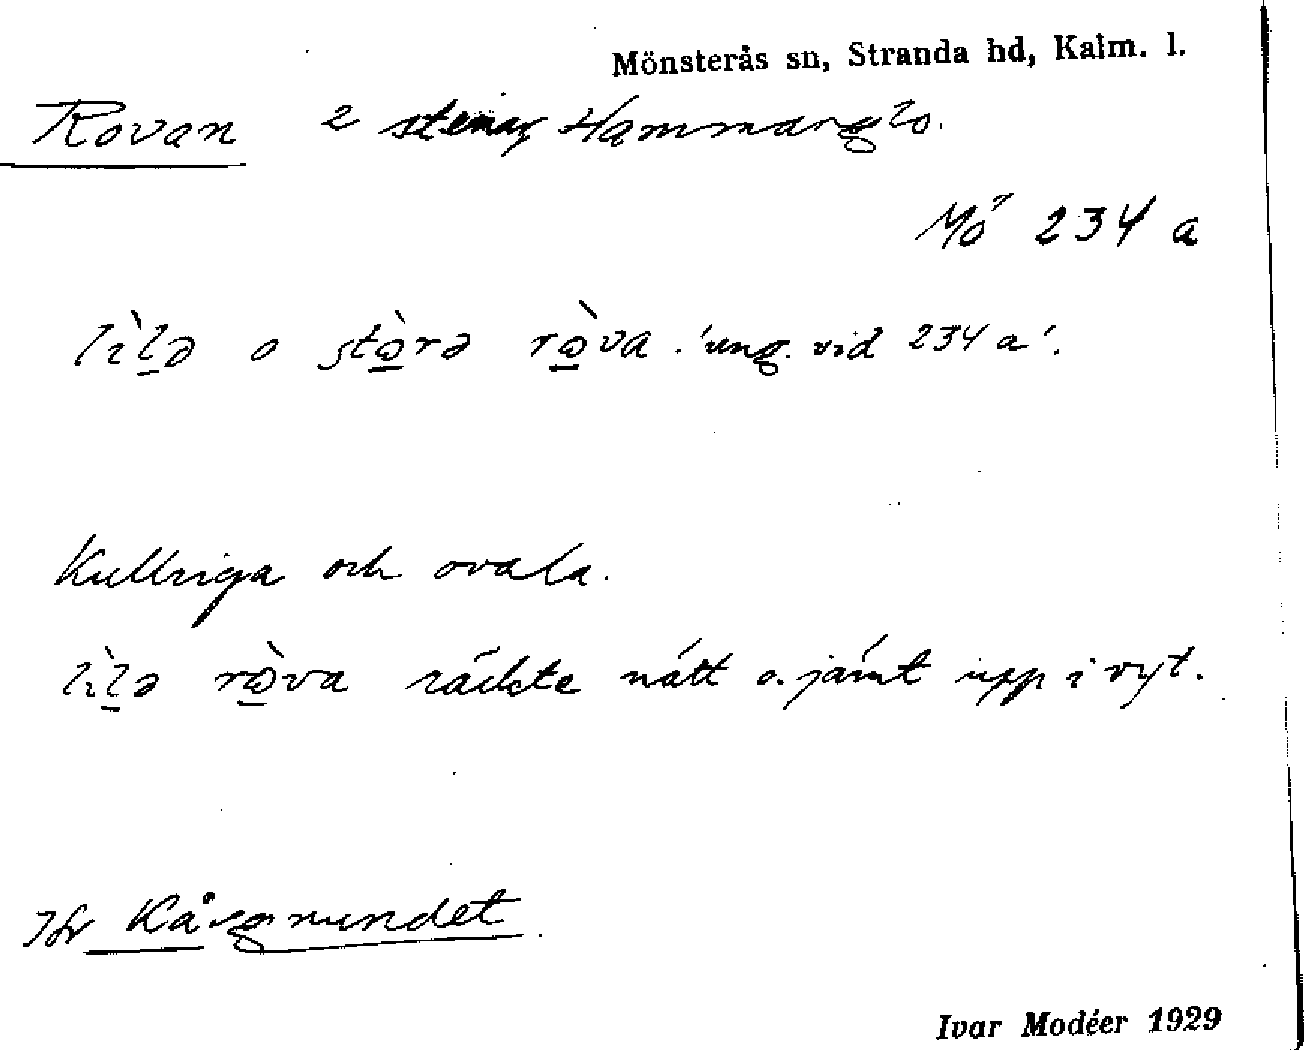 Mönsterås sn, Stranda hd, Kalm. l.
Rovan 2 stenar, Hammarglo.
Mö 234 a
lìlə o stòrə ròva. 'ung. vid 234 a'.
Kullriga och ovala.
lìlə ròva räckte nätt o. jämt upp i vyt.
Jfr
Ivar Modéer 1929